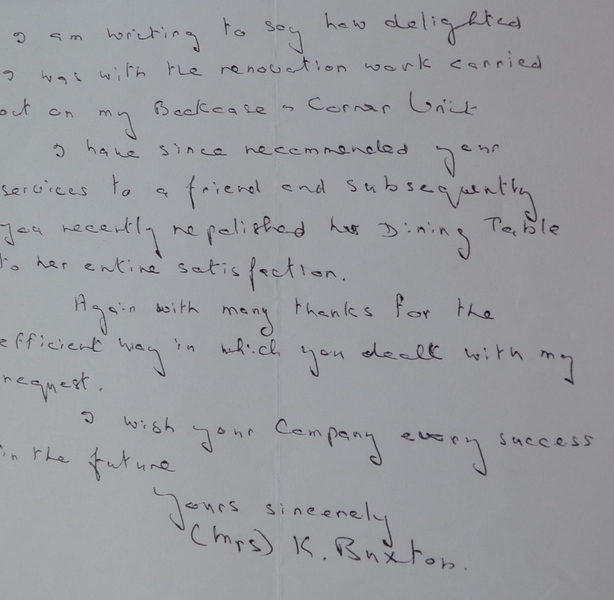 I am writing to say how delighted
I was with the renovation work carried
out on my Bookcase & Corner Unit
I have since recommended your
services to a friend and subsequently
you recently repolished her Dining Table
to her entire satisfaction.
Again with many thanks for the
efficient way in which you dealt with my
request.
I wish your Company every success
in the future
Yours sincerely
(Mrs) K. Buxton.